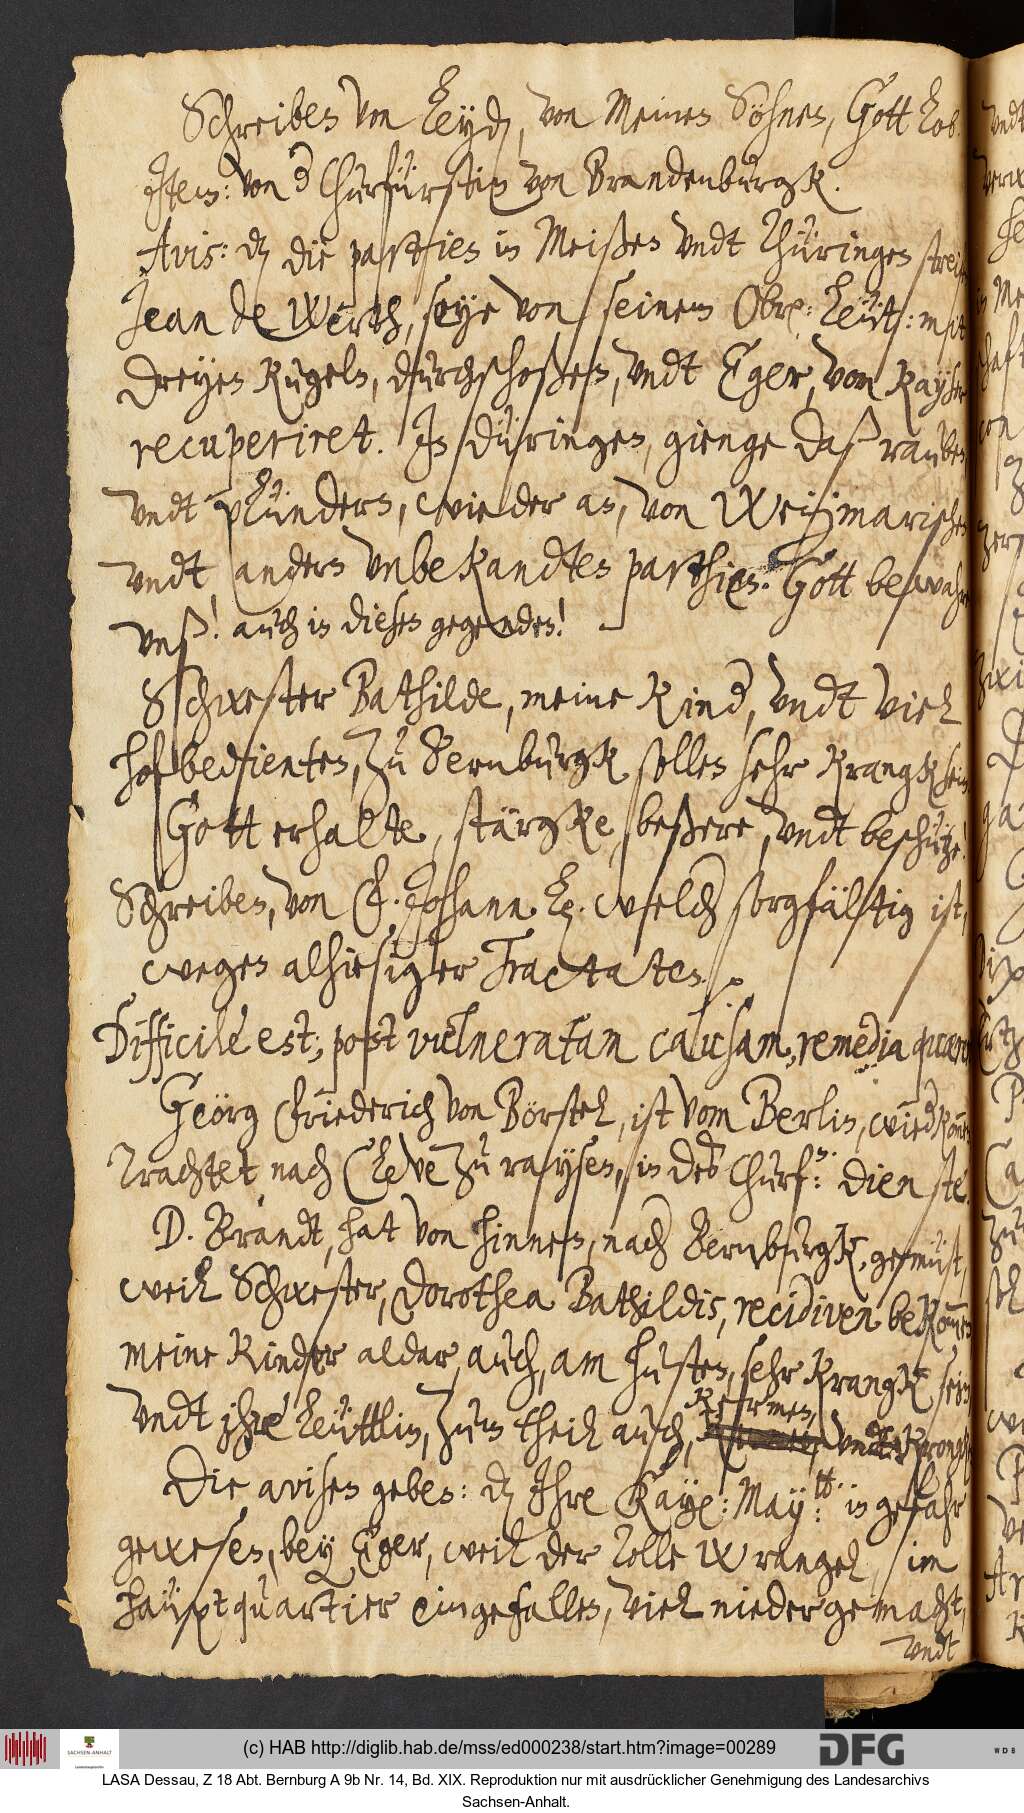 Schreiben von Leyd, von Meinen Söhnen, Gott lob.
Item: von d Churfürstin von Brandenburgk.
Avis: dz die partien in Meißen vndt Thüringen streifen
Jean de Werth, seye von seinem Obr: Leüt: mit
dreyen Kugeln, durchschoßen, vndt Eger, vom Kayser
recuperiret. In Düringen, gienge daß rauben
vndt plündern, wieder an, von Weymarischen
vndt andern vnbekandten parthien. Gott bewahre
vnß! auch in diesen gegenden!
Schwester Bathilde, meine Kind, vndt viel
hofbedienten, zu Bernburgk sollen sehr krangk sein
Gott erhalte, stärgke, beßere, vndt beschütze!
Schreiben, von F. Johann L. welch sorgfältig ist,
wegen alhiesiger Tractaten.
Difficile est; post vulneratam causam, remedia quærere
Geörg Friederich von Börstel, ist vom Berlin, wiedkommen
Trachtet nach Cleve zu raysen, in des Churf: dienste.
D. Brandt, hat von hinnen, nach Bernburgk, gemüst,
weil Schwester, Dorothea Bathildis, recidiven bekommen
meine Kinder aldar auch, am husten, sehr krangk sein
vndt ihre Leüttlin, zum theil auch, vndt krangk
Die avisen geben: dz Ihre Kay: May:tt: in gefahr
gewesen, bey Eger, weil der Tolle Wrangel, im
haüptquartier eingefallen, viel niedergemacht,
vndt
(c) HAB http://diglib.hab.de/mss/ed000238/start.htm?image=00289
SACHSEN-ANHALT
DFG
WDB
LASA Dessau, Z 18 Abt. Bernburg A 9b Nr. 14, Bd. XIX. Reproduktion nur mit ausdrücklicher Genehmigung des Landesarchivs
Sachsen-Anhalt.